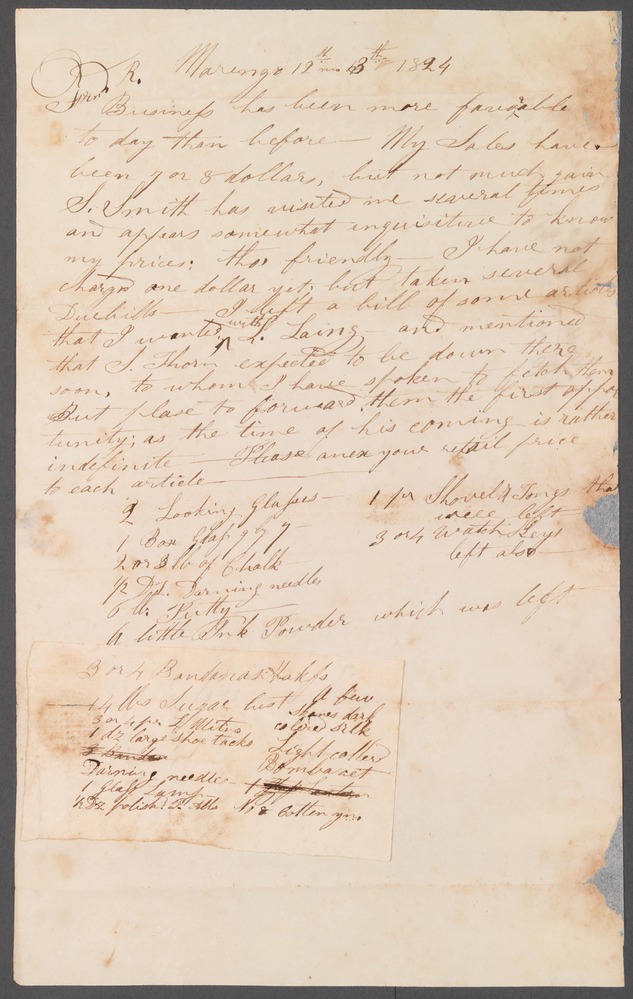 R. Marengo 12th mo 13th 1824
Friend
Business has been more favorable
to day than before — My Sales have
been 7 or 8 dollars, but not much gain
S. Smith has visited me several times
and appears somewhat inquisitive to know
my prices; tho' friendly — I have not
charged one dollar yet; but taken several
Duebills — I left a bill of some articles
that I wanted with L. Laing — and mentioned
that J. Thorn expected to be down there
soon, to whom I have spoken to fetch them
But please to forward them the first oppor
tunity; as the time of his coming is rather
indefinite — Please anex your retail price
to each article
2 Looking Glasses —
1 Box Glass 7 by 9 —
2 or 3 lb of Chalk
1/2 Dz. Darning needles
6 lb. Putty
A little Ink Powder which was left
1 pr Shovel & Tongs that
were left
3 or 4 Watch Keys
left also
3 or 4 Bandanas Hdkfs
14 lbs Sugar best
3 or 4 pr L Mitts
1 dz large shoe tacks
Darning needles —
1 Glass Lamp —
1/2 Dz polish'd
A few
Skanes dark
colored silk
Light colored
Bombazet
1
No 8 Cotten yn.